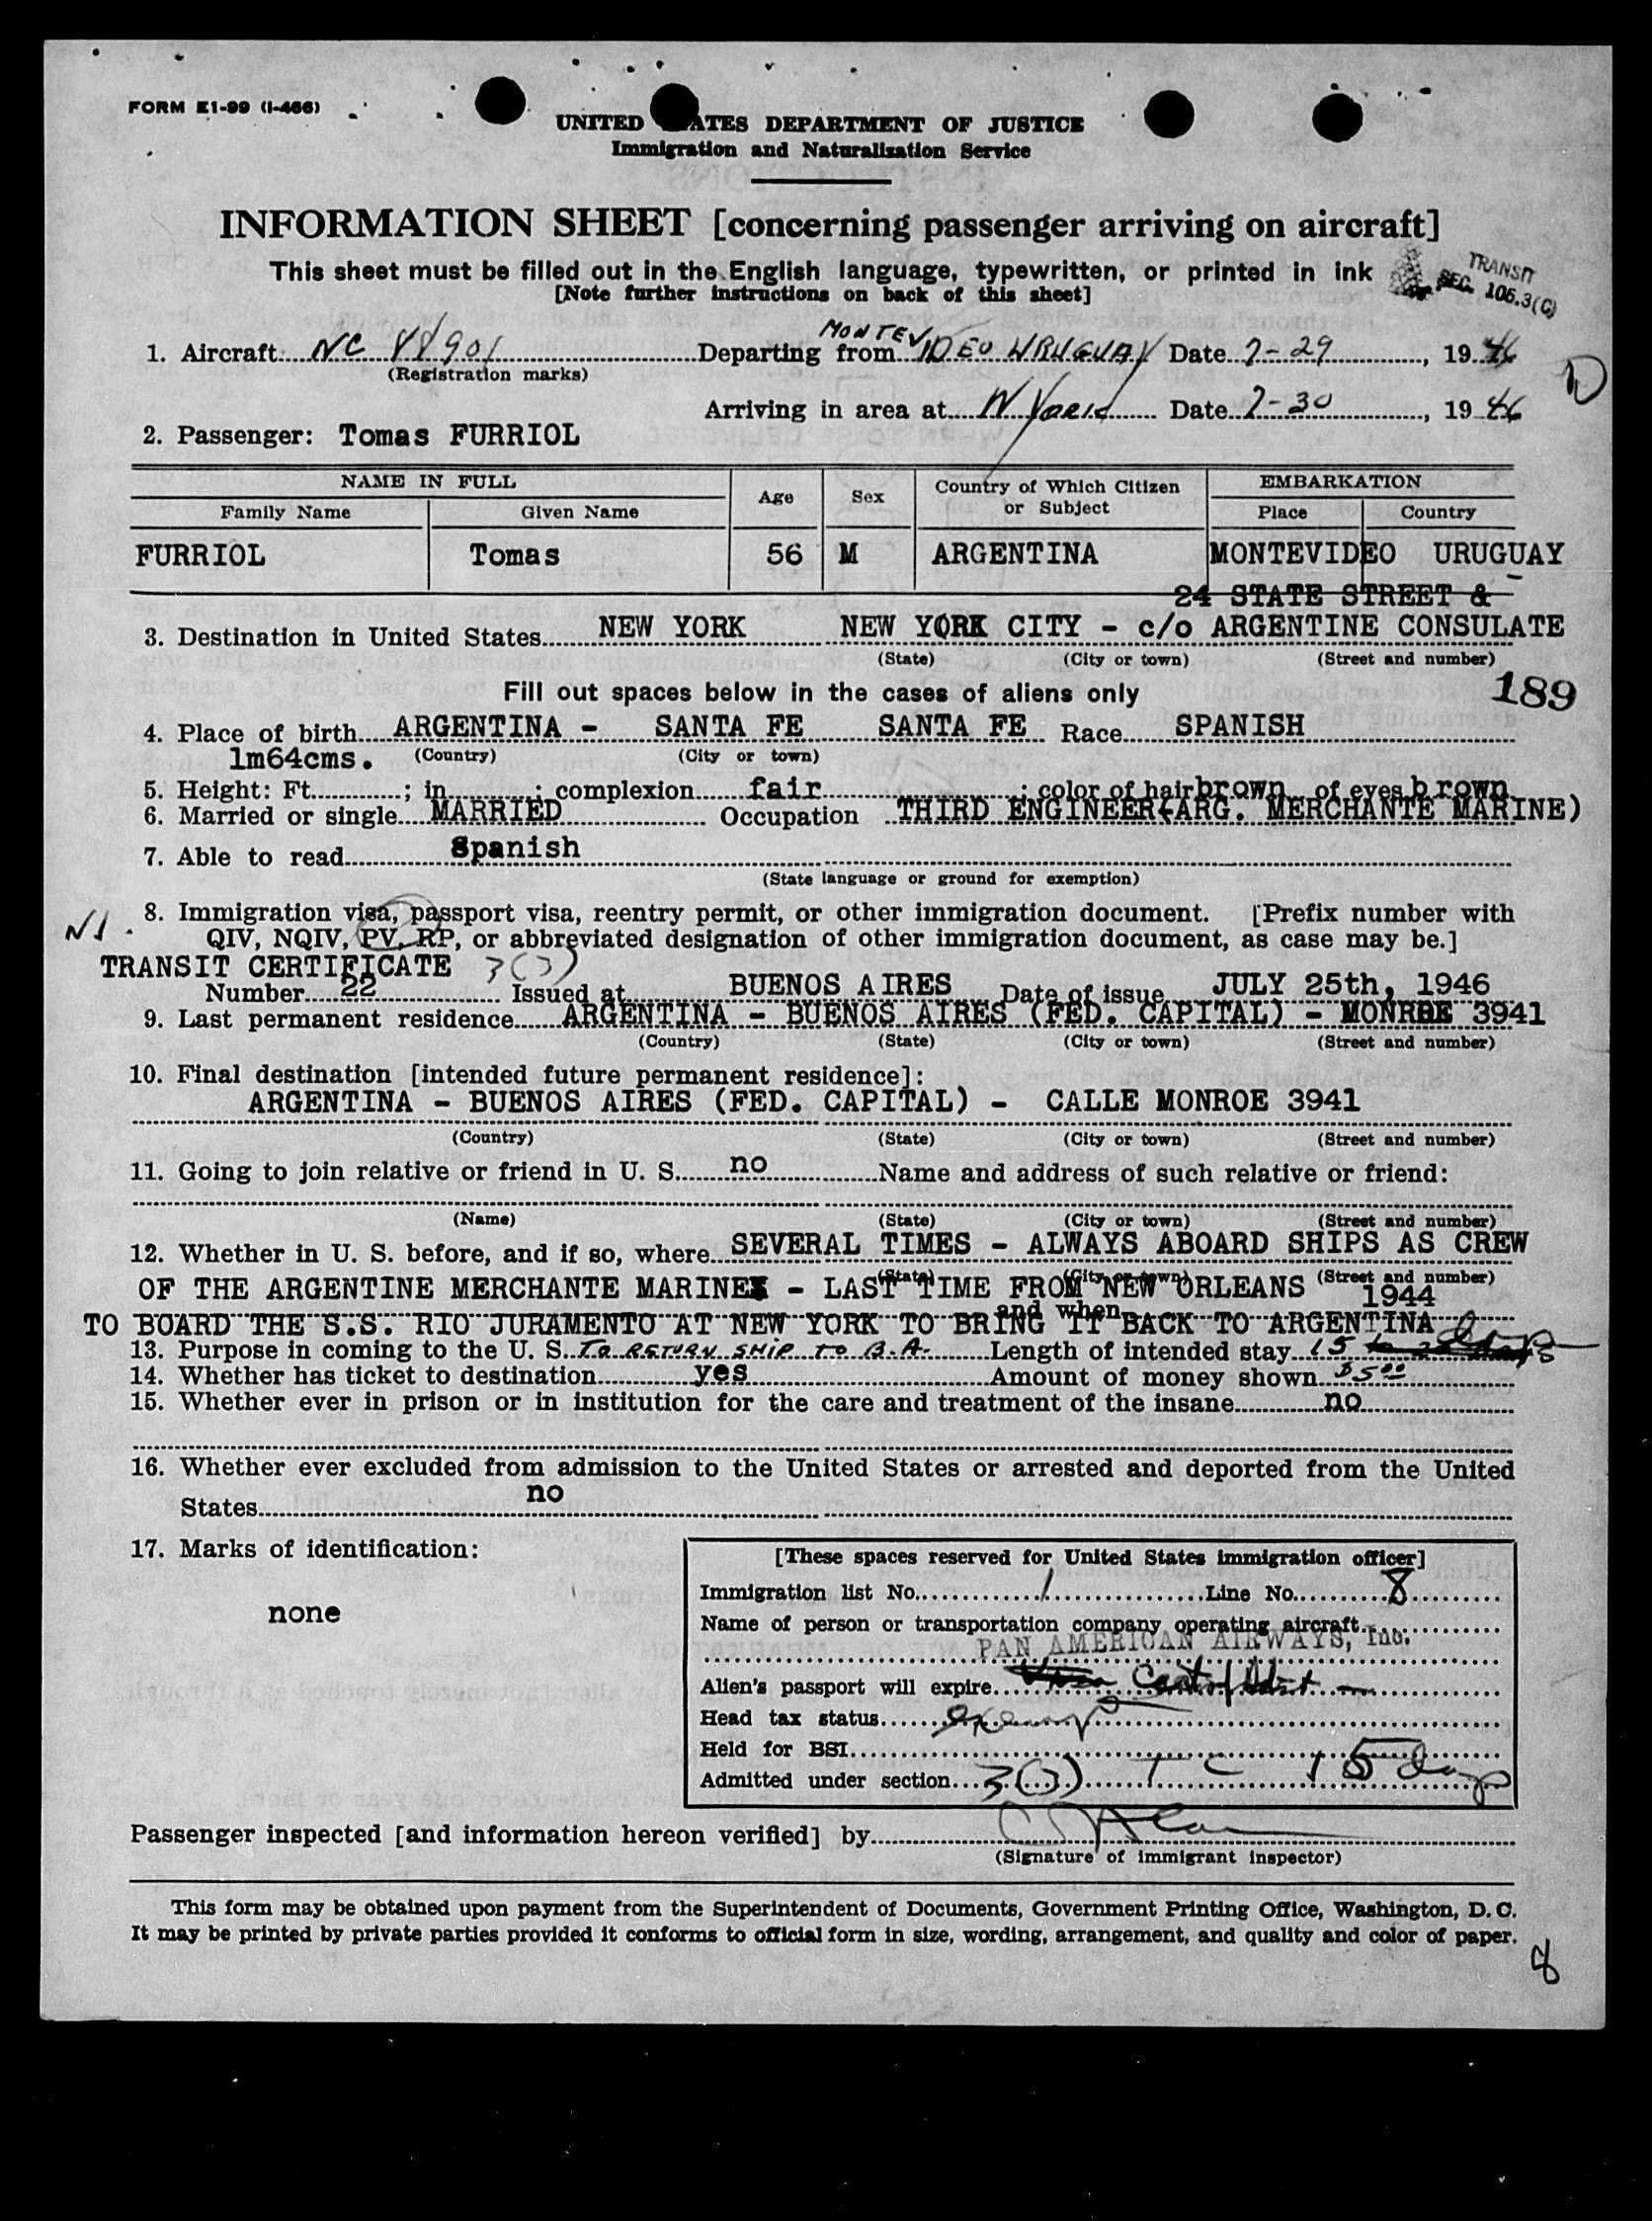 FORM E1-99 (I-466)
UNITED STATES DEPARTMENT OF JUSTICE
Immigration and Naturalization Service
INFORMATION SHEET [concerning passenger arriving on aircraft]
This sheet must be filled out in the English language, typewritten, or printed in ink
[Note further instructions on back of this sheet]
TRANSIT
SEC. 106.3(C)
1. Aircraft NC 88901 Departing from MONTEVIDEO URUGUAY Date 7-29, 1946
(Registration marks)
Arriving in area at N York Date 7-30, 1946
2. Passenger: Tomas FURRIOL
NAME IN FULL Age Sex Country of Which Citizen or Subject EMBARKATION
Family Name Given Name Place Country
FURRIOL Tomas 56 M ARGENTINA MONTEVIDEO URUGUAY
24 STATE STREET &
3. Destination in United States NEW YORK NEW YORK CITY - c/o ARGENTINE CONSULATE
(State) (City or town) (Street and number)
Fill out spaces below in the cases of aliens only
189
4. Place of birth ARGENTINA - SANTA FE SANTA FE Race SPANISH
1m64cms. (Country) (City or town)
5. Height: Ft. ; in. ; complexion fair ; color of hair brown of eyes brown
6. Married or single MARRIED Occupation THIRD ENGINEER (ARG. MERCHANTE MARINE)
7. Able to read Spanish
(State language or ground for exemption)
8. Immigration visa, passport visa, reentry permit, or other immigration document. [Prefix number with
QIV, NQIV, PV, RP, or abbreviated designation of other immigration document, as case may be.]
TRANSIT CERTIFICATE 3(3)
Number 22 Issued at BUENOS AIRES Date of issue JULY 25th, 1946
9. Last permanent residence ARGENTINA - BUENOS AIRES (FED. CAPITAL) - MONROE 3941
(Country) (State) (City or town) (Street and number)
10. Final destination [intended future permanent residence]:
ARGENTINA - BUENOS AIRES (FED. CAPITAL) - CALLE MONROE 3941
(Country) (State) (City or town) (Street and number)
11. Going to join relative or friend in U. S. no Name and address of such relative or friend:
(Name) (State) (City or town) (Street and number)
12. Whether in U. S. before, and if so, where SEVERAL TIMES - ALWAYS ABOARD SHIPS AS CREW
(State) (City or town) (Street and number)
OF THE ARGENTINE MERCHANTE MARINE - LAST TIME FROM NEW ORLEANS 1944
and when
TO BOARD THE S.S. RIO JURAMENTO AT NEW YORK TO BRING IT BACK TO ARGENTINA
13. Purpose in coming to the U. S. To RETURN SHIP TO B.A. Length of intended stay 15 days
14. Whether has ticket to destination yes Amount of money shown $5.00
15. Whether ever in prison or in institution for the care and treatment of the insane no
16. Whether ever excluded from admission to the United States or arrested and deported from the United
States no
17. Marks of identification:
none
[These spaces reserved for United States immigration officer]
Immigration list No. 1 Line No. 8
Name of person or transportation company operating aircraft
PAN AMERICAN AIRWAYS, Inc.
Alien's passport will expire
Head tax status exempt
Held for BSI
Admitted under section 3(3) TC 15 days
Passenger inspected [and information hereon verified] by
(Signature of immigrant inspector)
This form may be obtained upon payment from the Superintendent of Documents, Government Printing Office, Washington, D. C.
It may be printed by private parties provided it conforms to official form in size, wording, arrangement, and quality and color of paper.
8